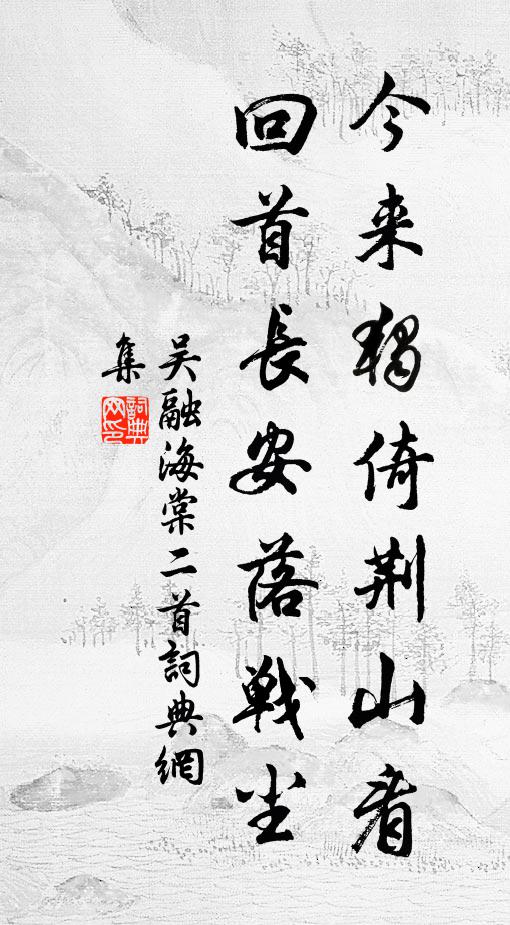 今来独倚荆山看
回首長安落戦尘
吴融海棠二首詞典網
集
詞典
网印